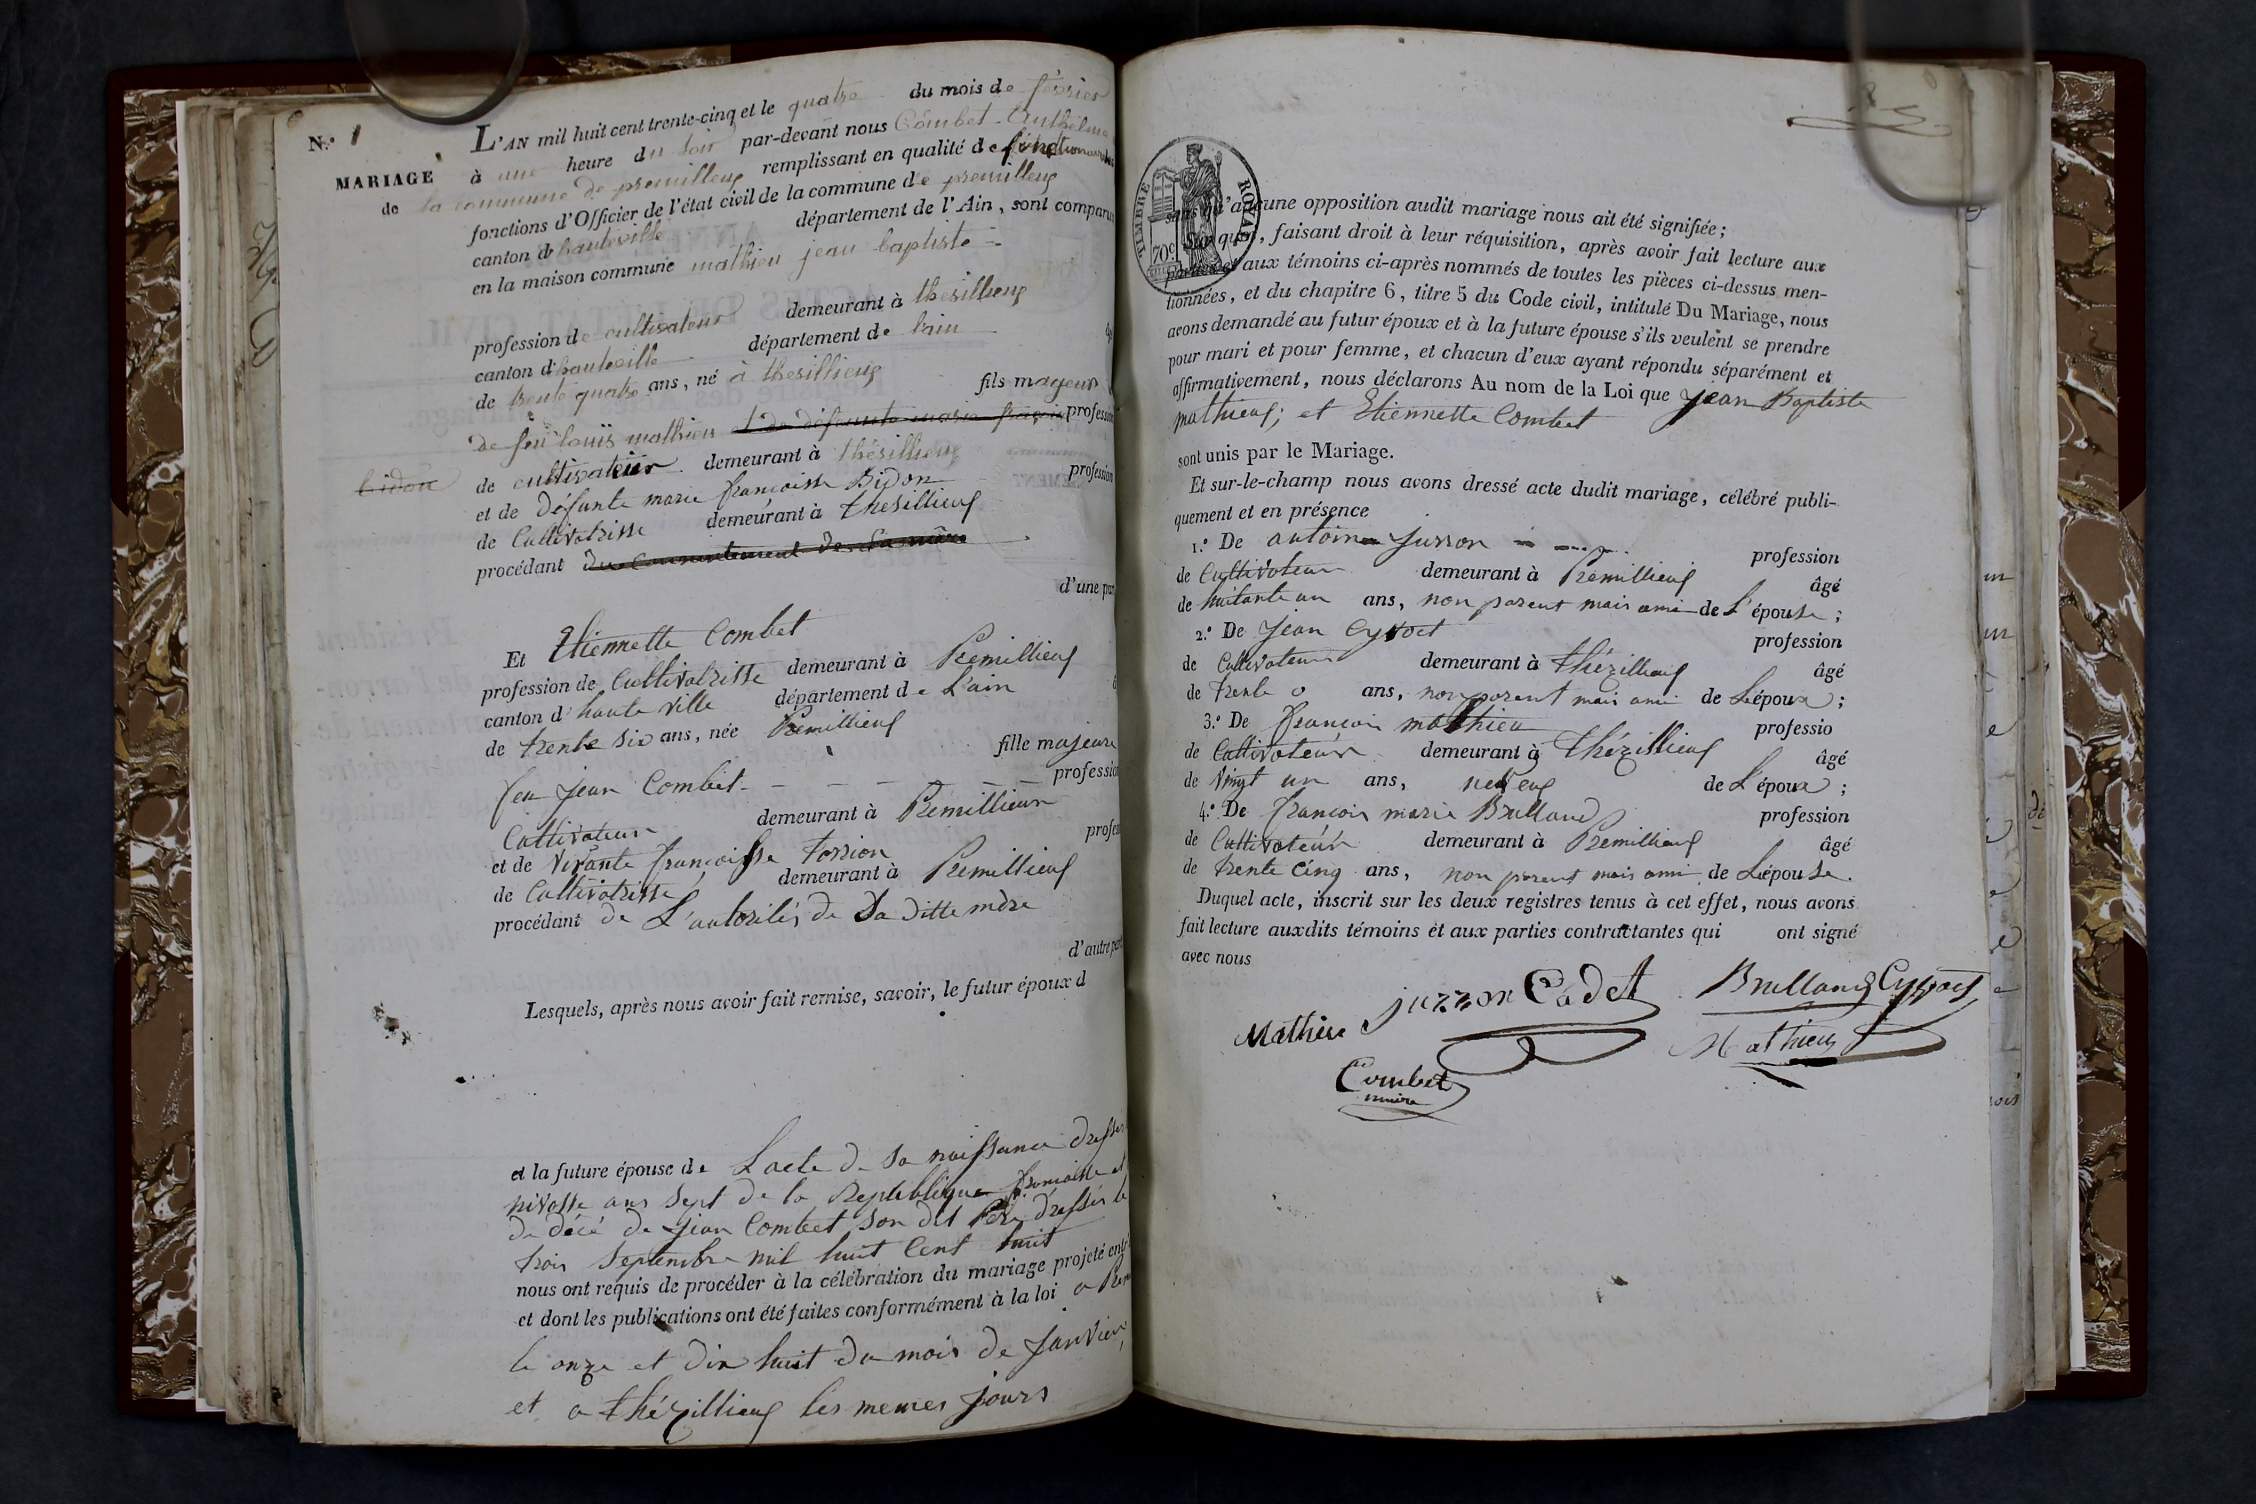 N.º 1
MARIAGE
de
L'AN mil huit cent trente-cinq et le quatre du mois de février
à une heure du soir par-devant nous Combet Anthelme
la commune de premillieux remplissant en qualité de fonctionnaire
fonctions d'Officier de l'état civil de la commune de premillieux
canton d hauteville département de l'Ain, sont comparus
en la maison commune mathieu jean baptiste
profession de cultivateur demeurant à thesillieux
canton d'hauteville département de lain
de trente quatre ans, né à thesillieux
fils mageur
de feu louïs mathieu et de défunte marie françoi profession
bidon
de cultivateur demeurant à thésillieux
et de défunte marie françoisse Bidon profession
de Cultivatrisse demeurant à thesillieux
procédant du Consentement de sa mère
d'une part
Et Etiennette Combet
profession de Cultivatrisse demeurant à Premillieux
canton d' haute ville département de L'ain
de trente six ans, née Premillieux
fille majeure
feu Jean Combet profession
Cultivateur demeurant à Premillieux
et de vivante françoisse profess
de Cultivatrisse demeurant à Premillieux
procédant de L'autorités de Sa ditte mère
d'autre part
Lesquels, après nous avoir fait remise, savoir, le futur époux d
et la future épouse de Lacte de sa naissance dressé
nivosse ans sept de la Republique francaisse et
de décé de Jean Combet son dit Père dressés le
trois Septembre mil huit Cent huit
nous ont requis de procéder à la célébration du mariage projeté entr
et dont les publications ont été faites conformément à la loi a Prem
le onze et dix huit du mois de Janvier
et a thézillieux les memes jours
TIMBRE ROYAL
70c
sans qu'aucune opposition audit mariage nous ait été signifiée;
Sur quoi, faisant droit à leur réquisition, après avoir fait lecture aux
parties et aux témoins ci-après nommés de toutes les pièces ci-dessus men-
tionnées, et du chapitre 6, titre 5 du Code civil, intitulé Du Mariage, nous
avons demandé au futur époux et à la future épouse s'ils veulent se prendre
pour mari et pour femme, et chacun d'eux ayant répondu séparément et
affirmativement, nous déclarons Au nom de la Loi que Jean Baptiste
mathieux; et Etiennette Combet
sont unis par le Mariage.
Et sur-le-champ nous avons dressé acte dudit mariage, célébré publi-
quement et en présence
1.º De antoine Juzron profession
de Cultivateur demeurant à Premillieux âgé
de huitante un ans, non parent mais ami de L'épouse;
2.º De Jean Cyvoct profession
de Cultivateur demeurant à thézillieux âgé
de trente o ans, non parent mais ami de L'époux;
3.º De françois mathieu professio
de Cultivateur demeurant à thézillieux âgé
de vingt un ans, neveux de L'époux;
4.º De françois marie Brulland profession
de Cultivateur demeurant à Premillieux âgé
de trente cinq ans, non parent mais ami de L'épouse.
Duquel acte, inscrit sur les deux registres tenus à cet effet, nous avons
fait lecture auxdits témoins et aux parties contractantes qui ont signé
avec nous
juzzon Cadet Brulland Cyvoct
Mathieu Mathieu
Combet
maire